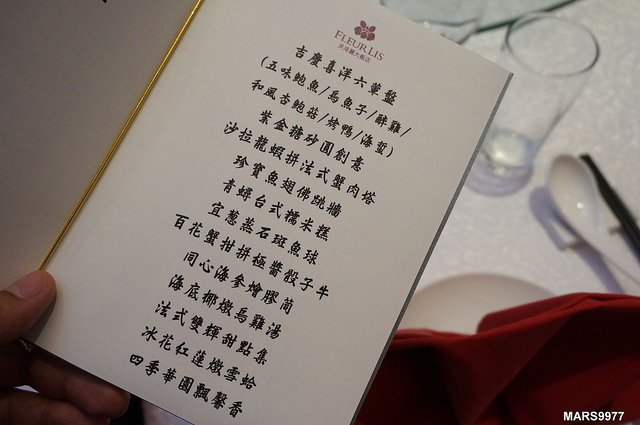 FLEUR LIS
芙洛麗大飯店
吉慶喜洋六葷盤
(五味鮑魚/烏魚子/醉雞/
和風杏鮑菇/烤鴨/海蜇)
紫金糖砂圓創意
沙拉龍蝦拼法式蟹肉塔
珍寶魚翅佛跳牆
青蟳台式糯米糕
宜蔥蒸石斑魚球
百花蟹柑拼極醬骰子牛
同心海參燴膠筒
海底椰燉烏雞湯
法式雙輝甜點集
冰花紅蓮燉雪蛤
四季華園飄馨香
MARS9977